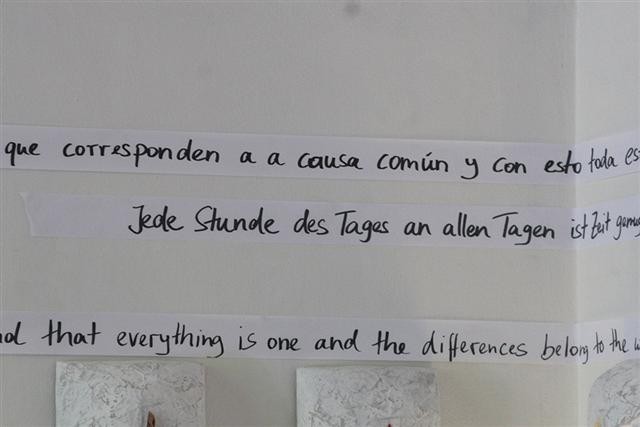 que corresponden a a causa común y con esto toda
Jede Stunde des Tages an allen Tagen ist Zeit
that everything is one and the differences belong to the